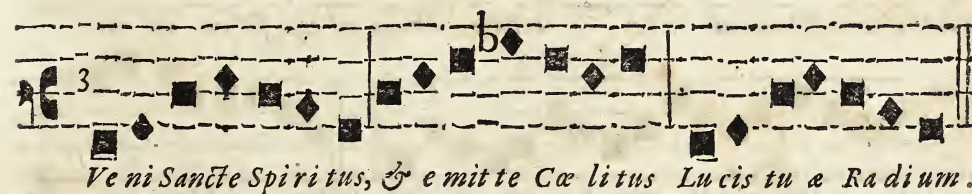 3 b
Ve ni Sancte Spiri tus, & e mit te Cœ litus Lu cis tu æ Radium